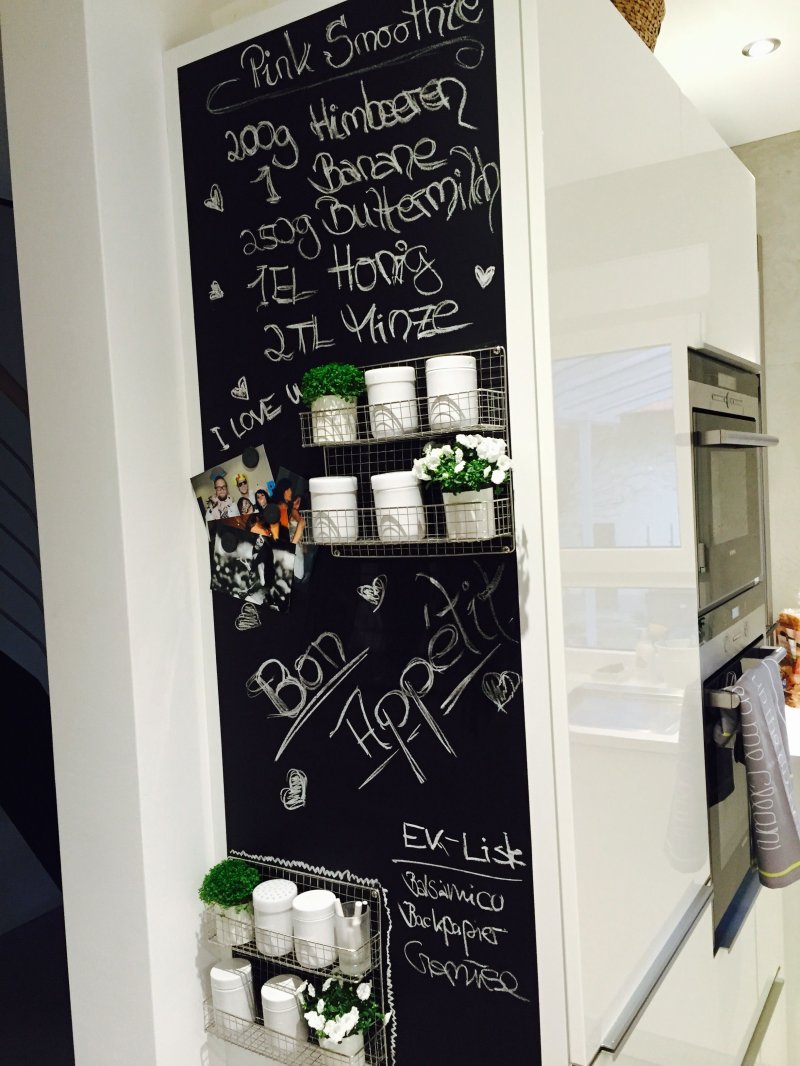 Pink Smoothie
200g Himbeeren
1 Banane
250g Buttermilch
1EL Honig
2TL Minze
I LOVE
Bon
Appétit
EK-Liste
Balsamico
Backpapier
Gemüse